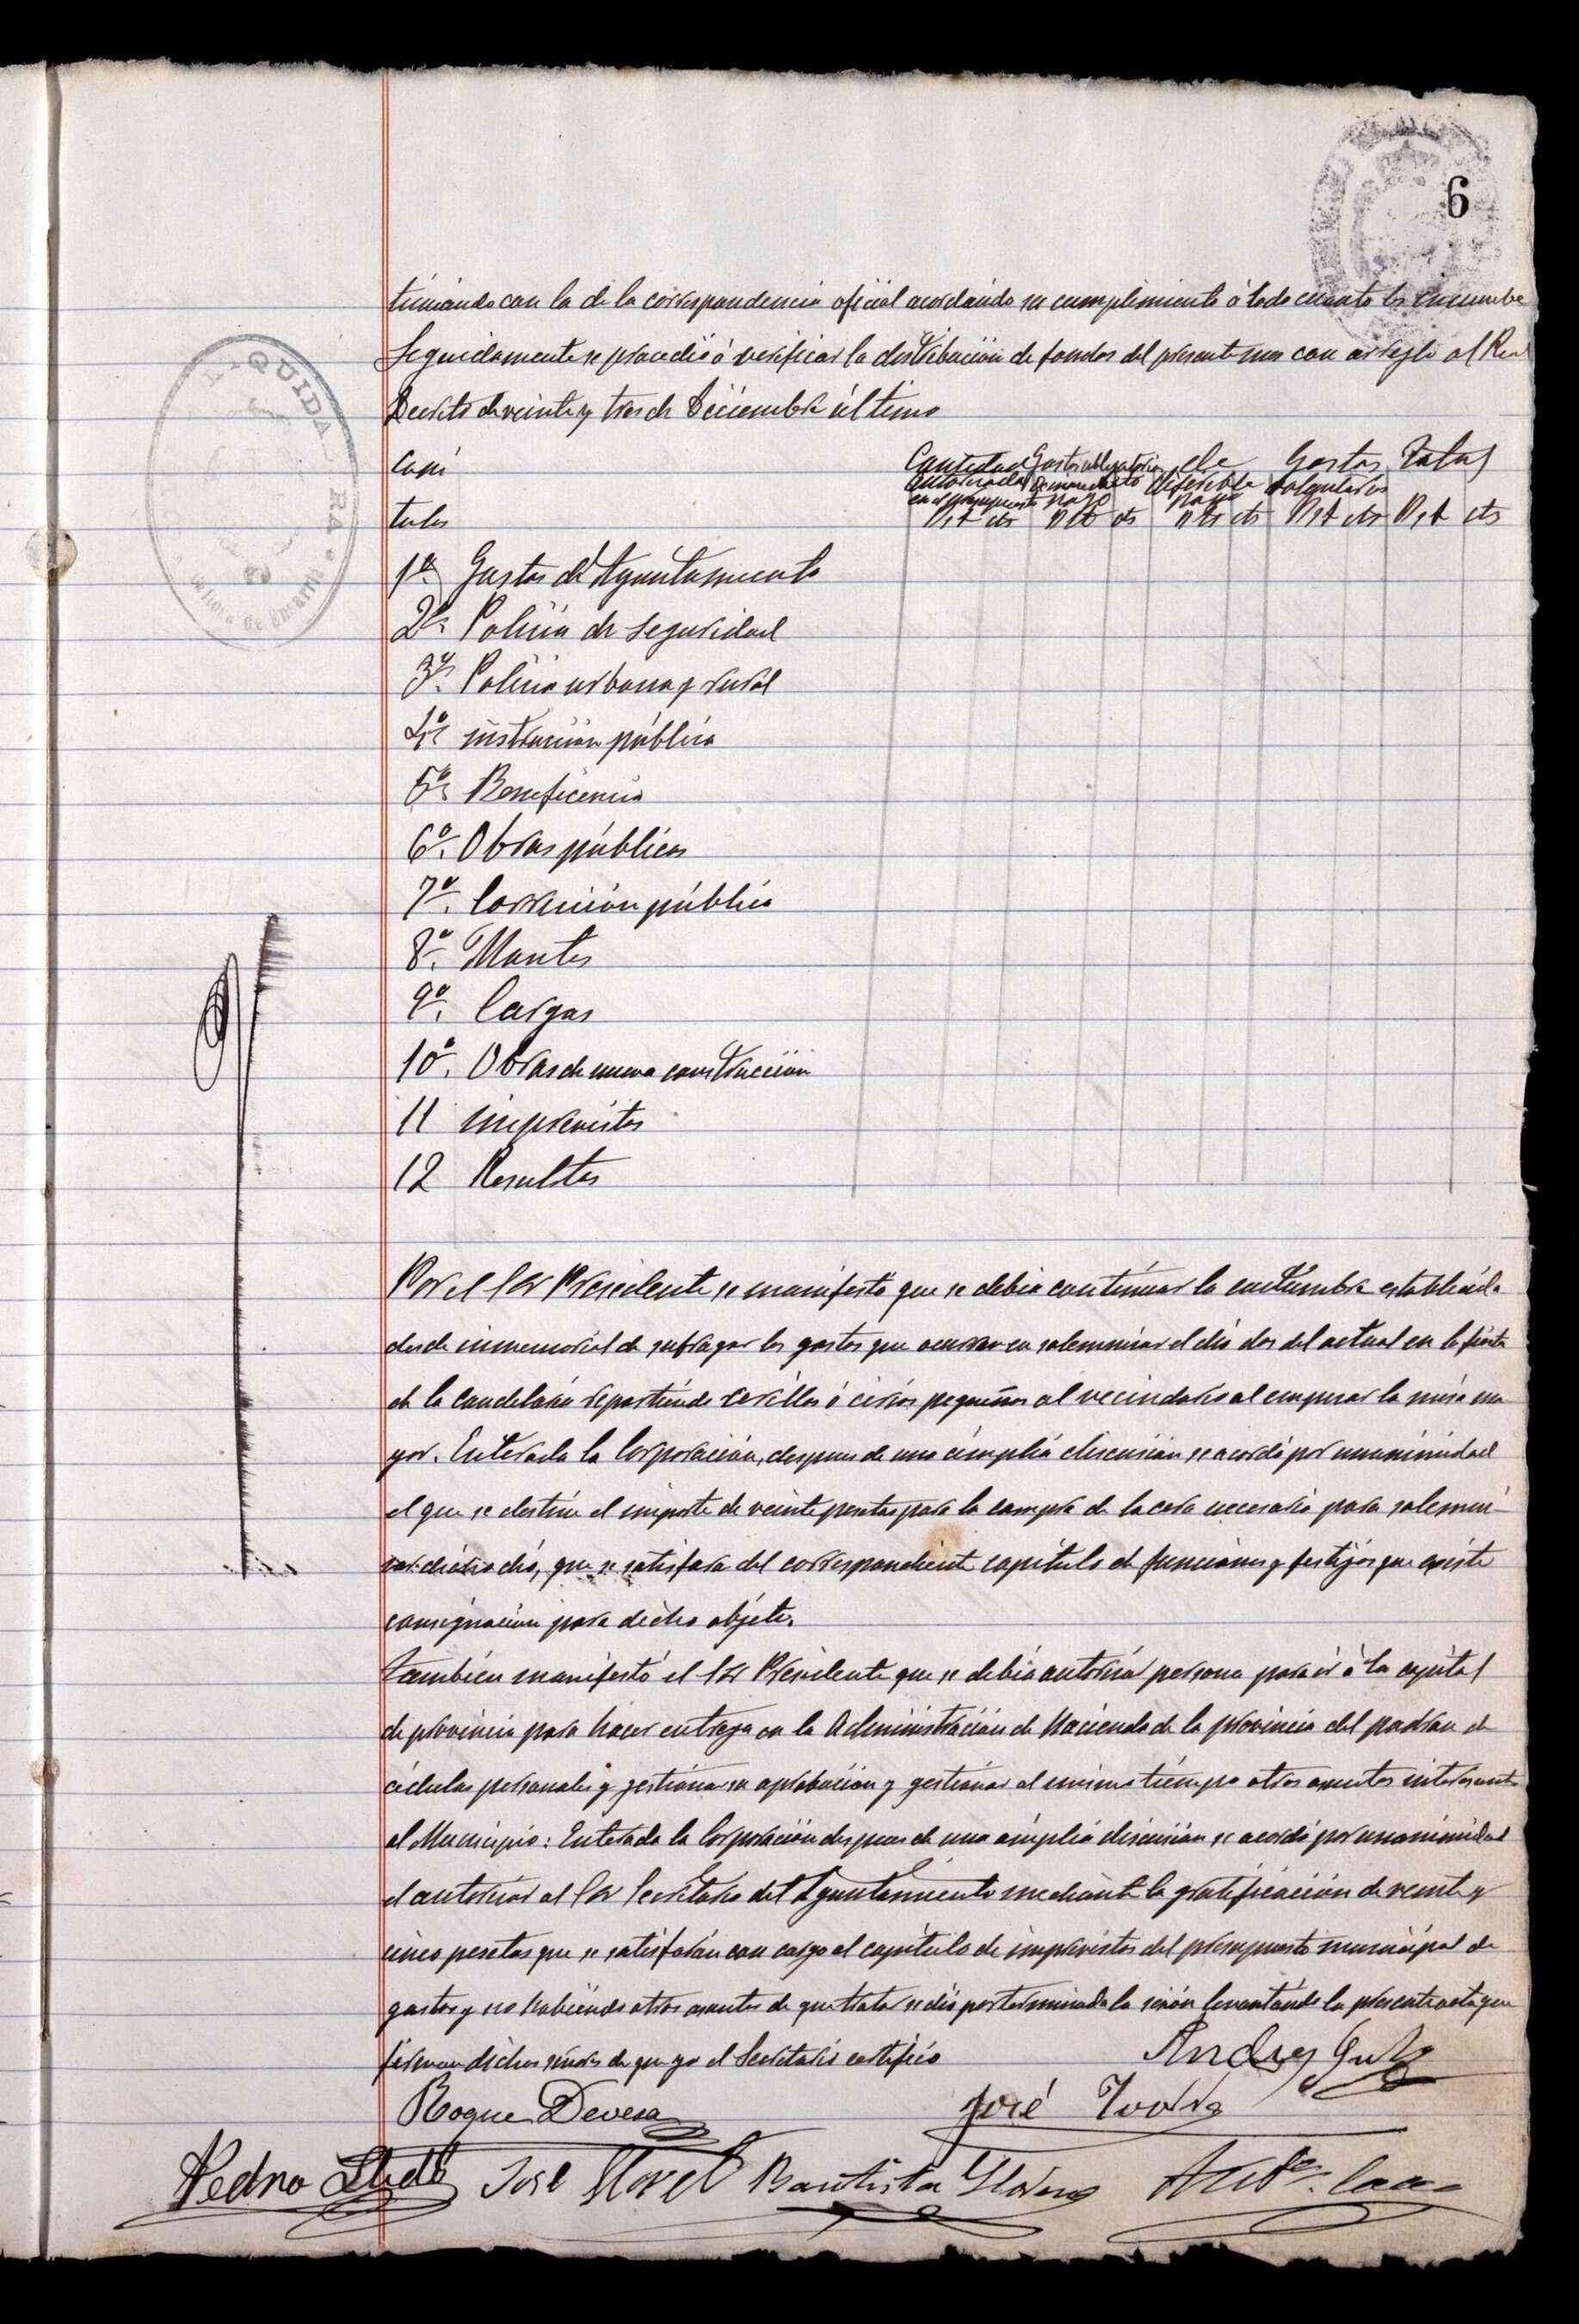 6
tinuando con la de la correspondencia oficial acordando su cumplimiento á todo cuanto les incumbe
Seguidamente se procedió á verificar la distribucion de fondos del presente mes con arreglo al Real
Decreto de veinte y tres de Diciembre último
Capi
tulos
Cantidad autorizada en el presupuesto Gastos obligatorios de inmediato pago de diferible pago Gastos voluntarios Total
Pst cts Pts cts Pts cts Pst cts Pst cts
1º. Gastos del Ayuntamiento
2º. Policia de Seguridad
3º. Policia urbana y rural
4º. instrucion pública
5º. Beneficencia
6º. Obras públicas
7º. Correccion pública
8º. Montes
9º. Cargas
10º. Obras de nueva construccion
11 imprevistos
12 Resultas
Por el Sor Presidente se manifestó que se debia continuar la custumbre establecida
desde inmemorial de sufragar los gastos que ocurran en solemnizar el dia dos del actual en la fiesta
de la Candelaria repartiendo cerillos ó cirios pequeños al vecindario al empezar la misa ma
yor. Enterada la Corporación, despues de una ámplia discusion se acordó por unanimidad
el que se destine el importe de veinte pesetas para la compra de la cera necesaria para solemni-
zar dicho dia, que se satisfara del correspondiente capitulo de funciones y festejos que existe
consignacion para dicho objeto.
Tambien manifestó el Sor Presidente que se debia autorizar persona para ir á la capital
de provincia para hacer entrega en la Administración de Hacienda de la provincia del padron de
cédulas personales y gestionar su aprobacion y gestionar al mismo tiempo otros asuntos interesantes
al Municipio: Enterada la Corporacion despues de una ámplia discusion se acordó por unanimidad
el autorizar al Sor Secretario del Ayuntamiento mediante la gratificacion de veinte y
cinco pesetas que se satisfarán con cargo al capitulo de imprevistos del presupuesto municipal de
gastos y no habiendo otros asuntos de que tratar se dió por terminada la sesion levantando la presente acta que
firman dichos señores de que yo el Secretario certifico
Andres
Roque Devesa
José
Pedro Lledó José Lloret Bautista Llorens